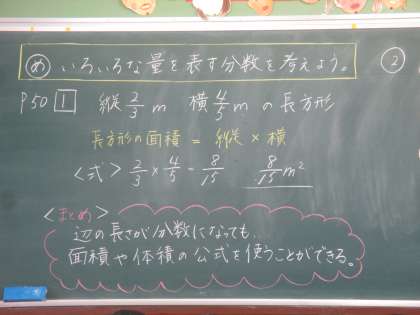 め いろいろな量を表す分数を考えよう。
②
P50 1 縦 2/3 m 横 4/5 m の長方形
長方形の面積 = 縦 × 横
<式> 2/3 × 4/5 = 8/15 8/15 m²
<まとめ>
辺の長さが分数になっても、
面積や体積の公式を使うことができる。